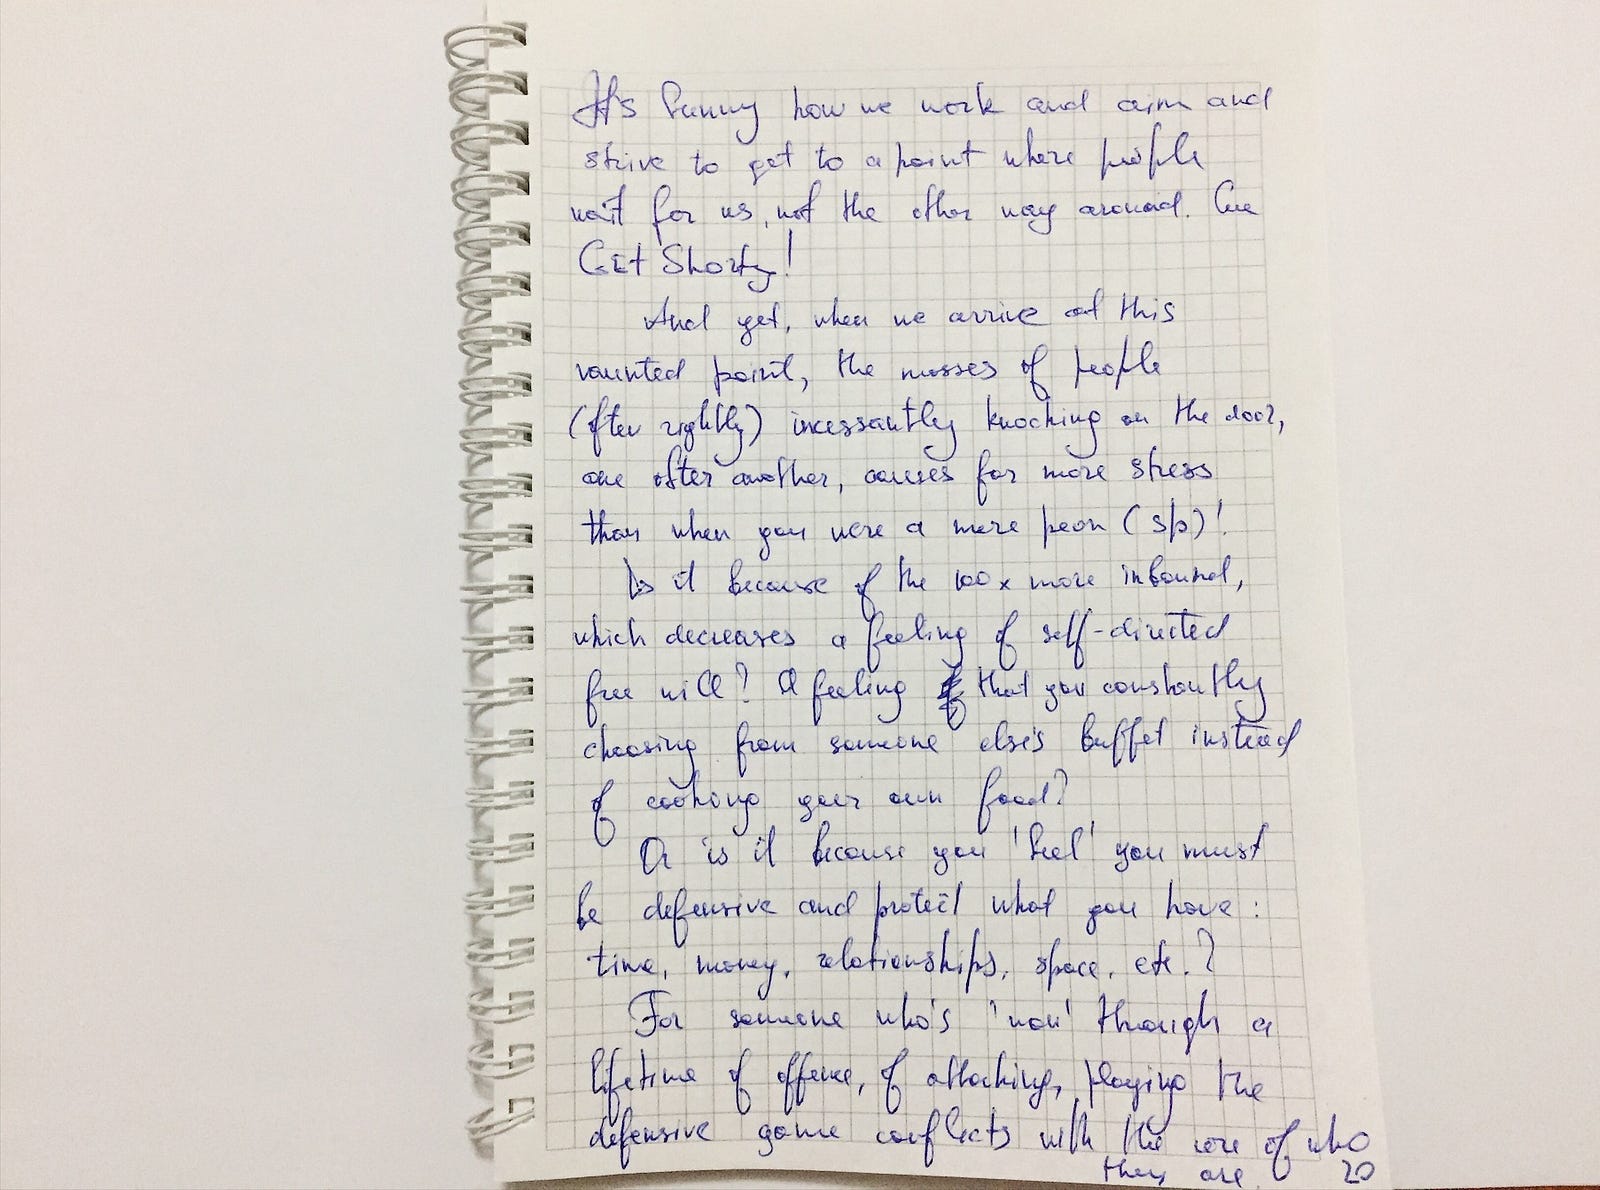 It's funny how we work and aim and
strive to get to a point where people
wait for us, not the other way around. Cue
Get Shorty!
And yet, when we arrive at this
vaunted point, the masses of people
(often rightly) incessantly knocking on the door,
one after another, causes far more stress
than when you were a mere peon (sp)!
Is it because of the 100x more inbound,
which decreases a feeling of self-directed
free will? A feeling that you constantly
choosing from someone else's buffet instead
of cooking your own food?
Or is it because you 'feel' you must
be defensive and protect what you have:
time, money, relationships, space, etc.?
For someone who's 'won' through a
lifetime of offense, of attacking, playing the
defensive game conflicts with the core of who
they are
20